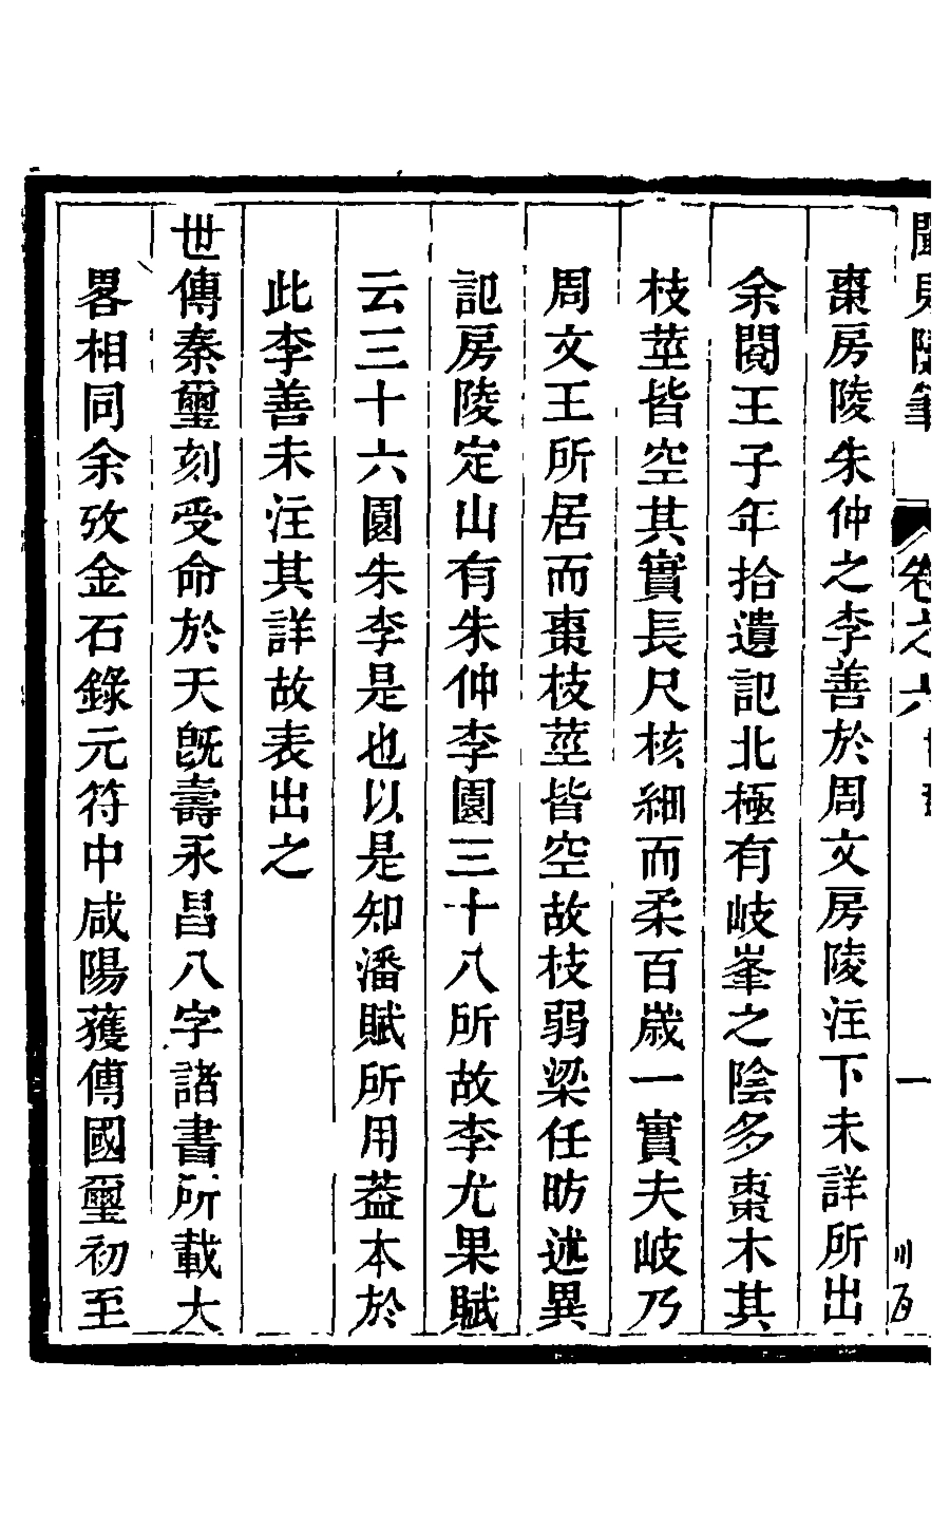 卷之六
一
棗房陵朱仲之李善於周文房陵注下未詳所出
余閱王子年拾遺記北極有岐峯之陰多棗木其
枝莖皆空其實長尺核細而柔百歲一實夫岐乃
周文王所居而棗枝莖皆空故枝弱梁任昉述異
記房陵定山有朱仲李園三十八所故李尤果賦
云三十六園朱李是也以是知潘賦所用葢本於
此李善未注其詳故表出之
世傳秦璽刻受命於天旣壽永昌八字諸書所載大
畧相同余攷金石錄元符中咸陽獲傳國璽初至